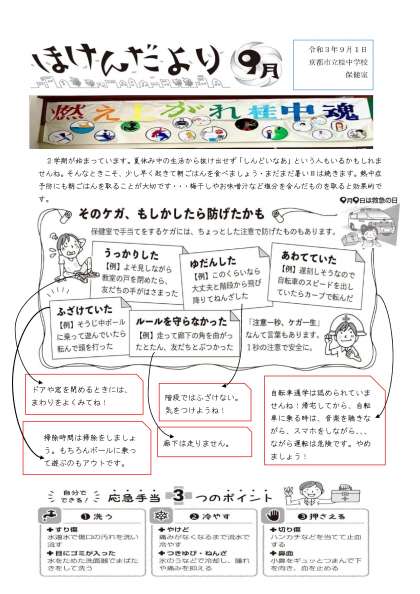 ほけんだより 9月
令和3年9月1日
京都市立桂中学校
保健室
燃え上がれ桂中魂
2学期が始まっています。夏休み中の生活から抜け出せず「しんどいなあ」という人もいるかもしれま
せんね。そんなときこそ、少し早く起きて朝ごはんを食べましょう・まだまだ暑い日は続きます。熱中症
予防にも朝ごはんを取ることが大切です・・・梅干しやお味噌汁など塩分を含んだものを取ると効果的で
す。
9月9日は救急の日
そのケガ、もしかしたら防げたかも
保健室で手当てをするケガには、ちょっとした注意で防げたものもあります。
うっかりした
【例】よそ見しながら
教室の戸を閉めたら、
友だちの手がはさまった
ゆだんした
【例】このくらいなら
大丈夫と階段から飛び
降りてねんざした
あわてていた
【例】遅刻しそうなので
自転車のスピードを出し
ていたらカーブで転んだ
ふざけていた
【例】そうじ中ボール
に乗って遊んでいたら
転んで頭を打った
ルールを守らなかった
【例】走って廊下の角を曲が
ったとたん、友だちとぶつかった
「注意一秒、ケガ一生」
なんて言葉もあります。
1秒の注意で安全に。
ドアや窓を閉めるときには、
まわりをよくみてね!
階段ではふざけない。
気をつけようね!
自転車通学は認められていま
せんね!帰宅してから、自転
車に乗る時は、音楽を聴きな
がら、スマホをしながら、、、
ながら運転は危険です。やめ
ましょう!
掃除時間は掃除をしましょ
う。もちろんボールに乗っ
て遊ぶのもアウトです。
廊下は走りません。
自分でできる! 応急手当 3つのポイント
1 洗う
すり傷
水道水で傷口の汚れを洗い
流す
目にゴミが入った
水をためた洗面器でまばた
きをして洗う
2 冷やす
やけど
痛みがなくなるまで流水で
冷やす
つきゆび・ねんざ
氷のうなどで冷却し、腫れ
や痛みを抑える
3 押さえる
切り傷
ハンカチなどを当てて止血
する
鼻血
小鼻をギュッとつまんで下
を向き、血を止める